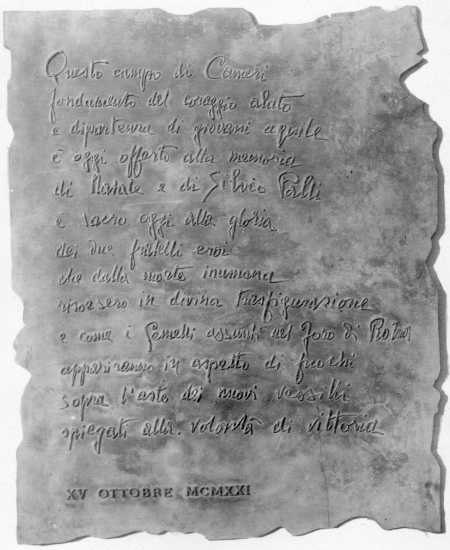 Questo campo di Cameri
fondamento del coraggio alato
e dipartenza di giovani aquile
è oggi offerto alla memoria
di Natale e di Silvio Palli
è sacro oggi alla gloria
dei due fratelli eroi
che dalla morte inumana
risorsero in divina trasfigurazione
e come i Gemelli assunti nel Foro di Roma
appariranno in aspetto di fuochi
sopra l'asta dei nuovi vessilli
spiegati alla volontà di vittoria
XV OTTOBRE MCMXXI